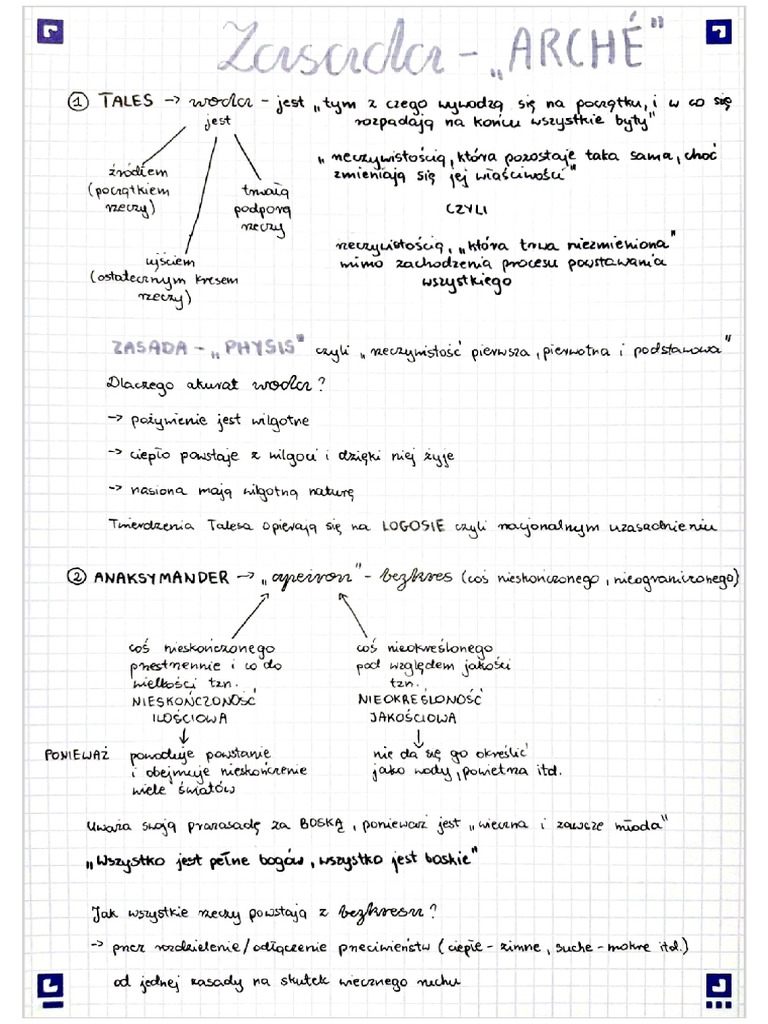 Zasada - „ARCHÉ"
① TALES → woda - jest „tym z czego wywodzą się na początku, i w co się
rozpadają na końcu wszystkie byty"
jest
źródłem
(początkiem
rzeczy)
trwałą
podporą
rzeczy
ujściem
(ostatecznym kresem
rzeczy)
„rzeczywistością, która pozostaje taka sama, choć
zmieniają się jej właściwości"
CZYLI
rzeczywistością, „która trwa niezmieniona"
mimo zachodzenia procesu powstawania
wszystkiego
ZASADA - „PHYSIS" czyli „rzeczywistość pierwsza, pierwotna i podstawowa"
Dlaczego akurat woda?
→ pożywienie jest wilgotne
→ ciepło powstaje z wilgoci i dzięki niej żyje
→ nasiona mają wilgotną naturę
Twierdzenia Talesa opierają się na LOGOSIE czyli racjonalnym uzasadnieniu
② ANAKSYMANDER → „apeiron" - bezkres (coś nieskończonego, nieograniczonego)
coś nieskończonego
przestrzennie i co do
wielkości tzn.
NIESKOŃCZONOŚĆ
ILOŚCIOWA
coś nieokreślonego
pod względem jakości
tzn.
NIEOKREŚLONOŚĆ
JAKOŚCIOWA
PONIEWAŻ powoduje powstanie
i obejmuje nieskończenie
wiele światów
nie da się go określić
jako wody, powietrza itd.
Uważa swoją prazasadę za BOSKĄ, ponieważ jest „wieczna i zawsze młoda"
„Wszystko jest pełne bogów, wszystko jest boskie"
Jak wszystkie rzeczy powstają z bezkresu?
→ przez rozdzielenie/odłączenie przeciwieństw (ciepłe - zimne, suche - mokre itd.)
od jednej zasady na skutek wiecznego ruchu